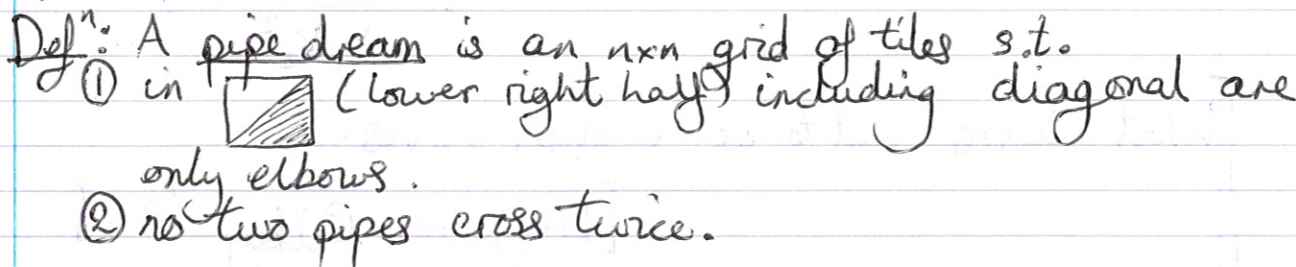 Defⁿ: A pipe dream is an n×n grid of tiles s.t.
① in (lower right half) including diagonal are
only elbows.
② no two pipes cross twice.